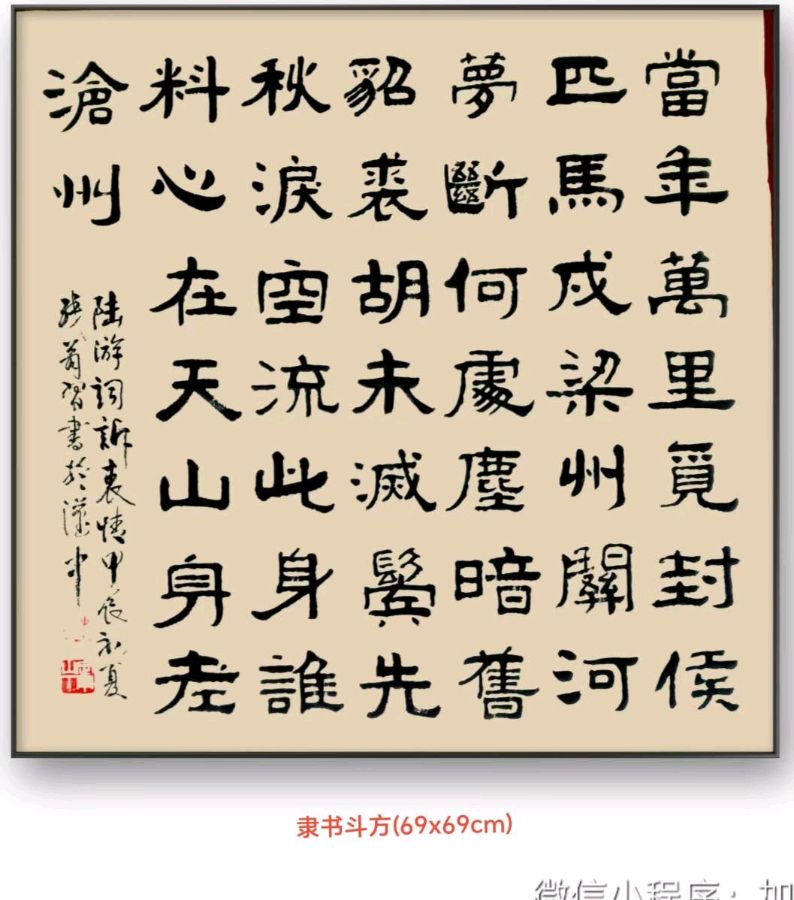 當年萬里覓封侯
匹馬戍梁州關河
夢斷何處塵暗舊
貂裘胡未滅鬢先
秋淚空流此身誰
料心在天山身老
滄州
陆游詞訴衷情甲辰初夏
習書於漢中
隶书斗方(69x69cm)
微信小程序：加